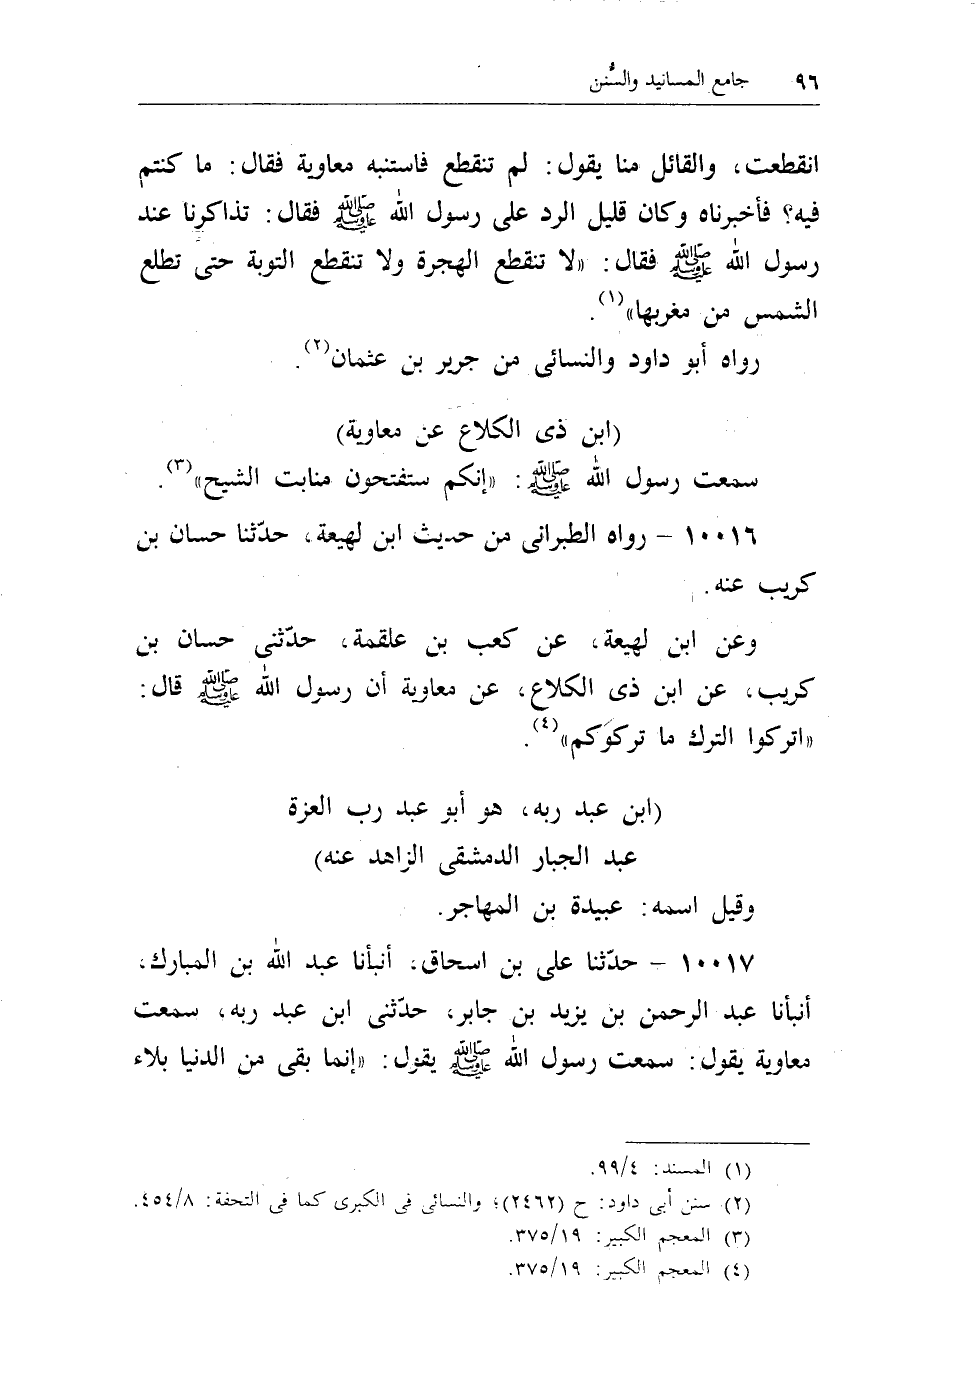 ٩٦ جامع المسانيد والسُّنن
انقطعت، والقائل منا يقول: لم تنقطع فاستنبه معاوية فقال: ما كنتم
فيه؟ فأخبرناه وكان قليل الرد على رسول الله ﷺ فقال: تذاكرنا عند
رسول الله ﷺ فقال: «لا تنقطع الهجرة ولا تنقطع التوبة حتى تطلع
الشمس من مغربها»(١).
رواه أبو داود والنسائى من جرير بن عثمان(٢).
(ابن ذى الكلاع عن معاوية)
سمعت رسول الله ﷺ: «إنكم ستفتحون منابت الشيح»(٣).
١٠٠١٦ - رواه الطبرانى من حديث ابن لهيعة، حدّثنا حسان بن
كريب عنه.
وعن ابن لهيعة، عن كعب بن علقمة، حدّثنى حسان بن
كريب، عن ابن ذى الكلاع، عن معاوية أن رسول الله ﷺ قال:
«اتركوا الترك ما تركوكم»(٤).
(ابن عبد ربه، هو أبو عبد رب العزة
عبد الجبار الدمشقى الزاهد عنه)
وقيل اسمه: عبيدة بن المهاجر.
١٠٠١٧ - حدّثنا على بن اسحاق، أنبأنا عبد الله بن المبارك،
أنبأنا عبد الرحمن بن يزيد بن جابر، حدّثنى ابن عبد ربه، سمعت
معاوية يقول: سمعت رسول الله ﷺ يقول: «إنما بقى من الدنيا بلاء
(١) المسند: ٩٩/٤.
(٢) سنن أبى داود: ح (٢٤٦٢)؛ والنسائى فى الكبرى كما فى التحفة: ٤٥٤/٨.
(٣) المعجم الكبير: ٣٧٥/١٩.
(٤) المعجم الكبير: ٣٧٥/١٩.